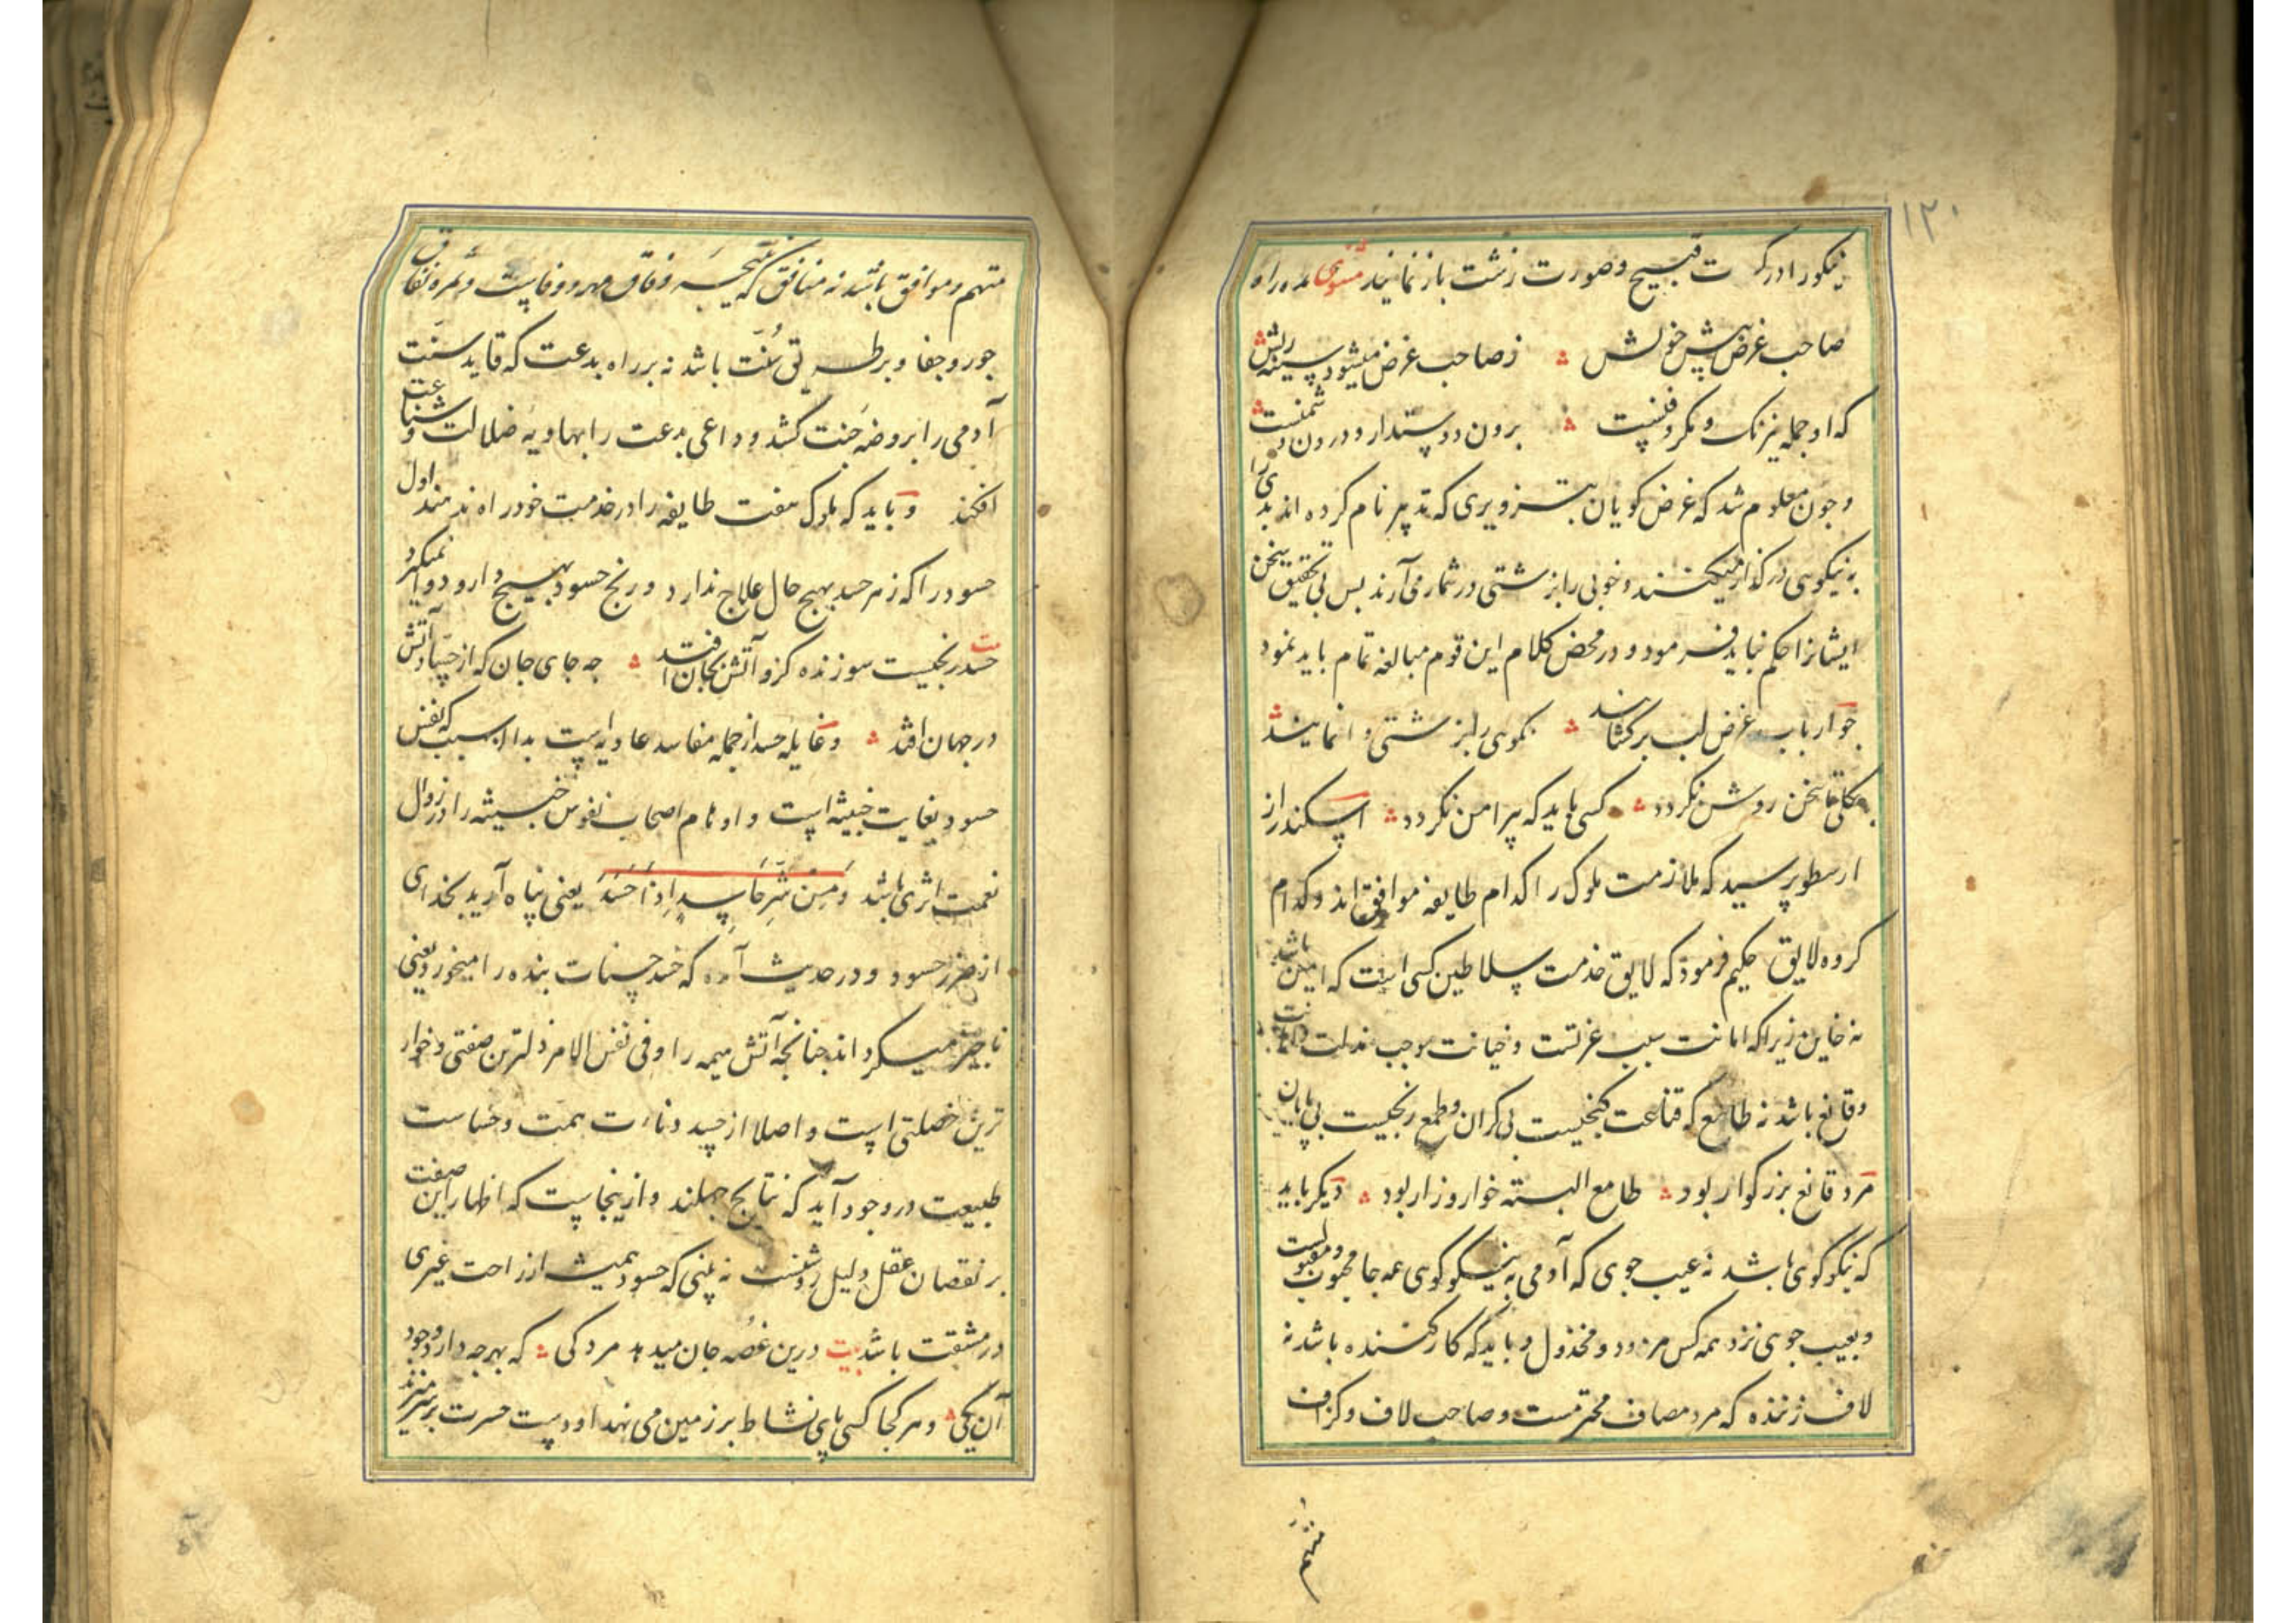 ۱۲۰
نیکو را در کـ ت قبیح و صورت زشت باز نمایند مثنوی مده راه
صاحب غرض پیش خویش ز صاحب غرض میشود سینه ریش
که او جمله نیرنک و مکر و فنست برون دوستدار و درون دشمنست
و چون معلوم شد که غرض کویان بتزویری که تدبیر نام کرده اند بدی را
به نیکویی در کذار میکنند و خوبی را بزشتی در شمار می آرند بس بی تحقیق سخن
ایشانرا حکم نباید فرمود و در محض کلام این قوم مبالغه تمام باید نمود
جو ارباب غرض لب برکشایند نکویی را بزشتی وا نمایند
بکلی تا سخن روشن نکردد کسی باید که پیرامن نکردد اسکندر از
ارسطو پرسید که ملازمت ملوک را کدام طایفه موافق اند و کدام
کروه لایق حکیم فرمود که لایق خدمت سلاطین کسی است که امین باشد
نه خاین زیرا که امانت سبب عزتست و خیانت موجب مذلت
و قانع باشد نه طامع که قناعت کنجیست بی کران و طمع رنجیست بی پایان
مرد قانع بزرکوار بود طامع البسته خوار و زار بود دیکر باید
که نیکو کوی باشد نه عیب جوی که آدمی به نیکو کوی همه جا محبوب و مقبولست
و بعیب جوی نزد همه کس مردود و مخذول و باید که کار کننده باشد نه
لاف زننده که مرد مصاف محترمست و صاحب لاف و کزاف
متهم
متهم و موافق باشد نه منافق که نتیجه وفاق مهر و وفاست و ثمره نفاق
جور و جفا و بر طریق سُنّت باشد نه بر راه بدعت که قاید سنّت
آدمی را بروضه جنت کشد و داعی بدعت را بهاویه ضلالت و شناعت
افکند و باید که ملوک هفت طایفه را در خدمت خود راه ندهند اول
حسود را که زهر حسد بهیج حال علاج ندارد و رنج حسود بهیج دارو دوا نمیکیرد
حسد رنجیست سوزنده کزو آتش بجان افتد جه جای جان که از حساد آتش
در جهان افتد و غایله حسد از جمله مفاسد عادیه است بدان سبب که نفس
حسود بغایت خبیثه است و اوهام اصحاب نفوس خبیثه را در زوال
نعمت اثری باشد وَ مِنْ شَرِّ حَاسِدٍ اِذَا حَسَدَ یعنی پناه آرید بخدای
از ضرر حسود و در حدیث آمده که حسد حسنات بنده را میخورد یعنی
ناجیز میکرداند جنانجه آتش هیمه را و فی نفس الامر ذلترین صفتی و خوار
ترین خصلتی است و اصلا از حسد دنائت همت و خساست
طبیعت در وجود آید که نتایج جهلند و از ینجاست که اظهار این صفت
بر نقصان عقل دلیل روشنست نه بینی که حسود همیشه از راحت غیری
در مشقت باشد بیت درین غصّه جان میدهد مردکی که بهرجه دارد وجود
آن یکی و هر کجا کسی پای نشاط بر زمین می نهد او دست حسرت بر سر میزند